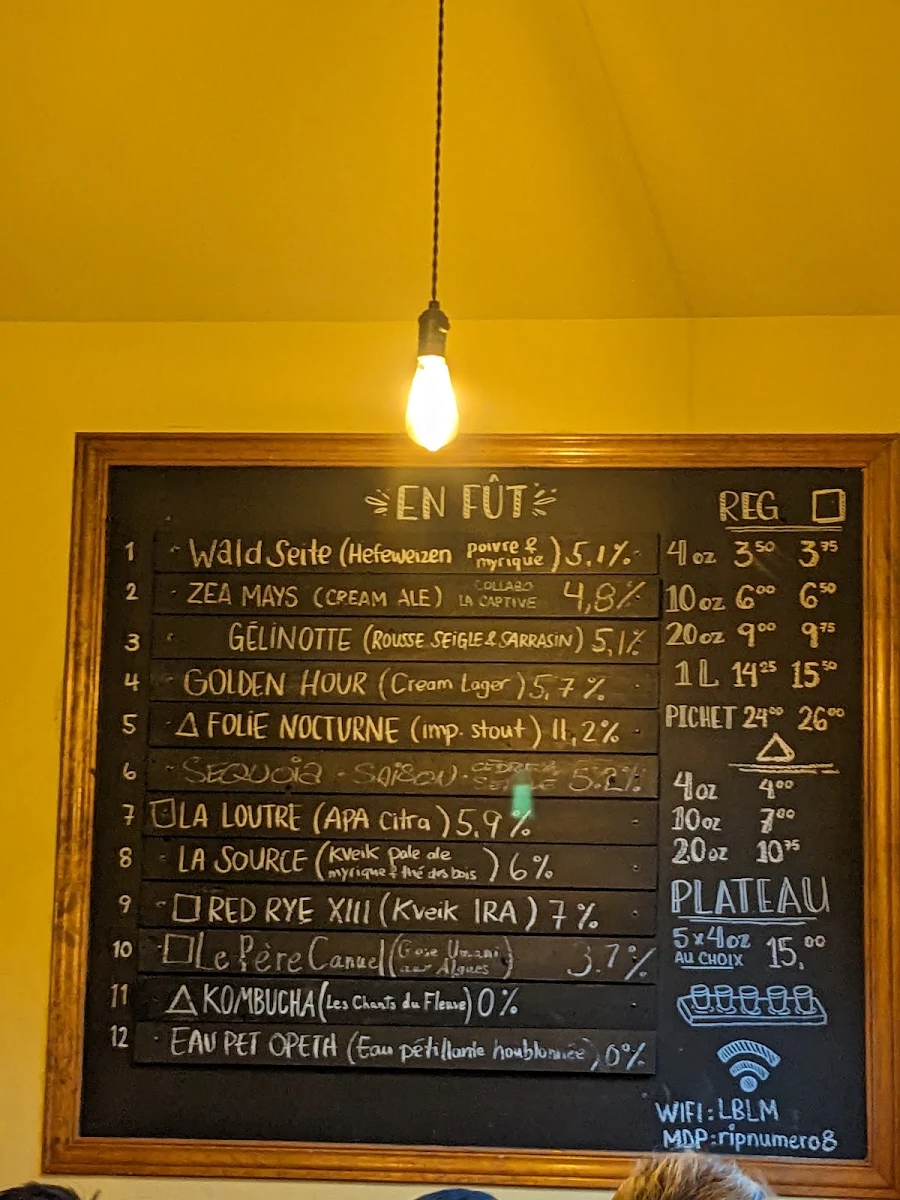 EN FÛT
1 Wald Seite (Hefeweizen poivre & myrique) 5,1%
2 ZEA MAYS (CREAM ALE) COLLABO LA CAPTIVE 4,8%
3 GÉLINOTTE (ROUSSE SEIGLE & SARRASIN) 5,1%
4 GOLDEN HOUR (Cream Lager) 5,7%
5 △ FOLIE NOCTURNE (imp. stout) 11,2%
6 SEQUOIA · SAISON · 5.2%
7 □ LA LOUTRE (APA Citra) 5.9%
8 LA SOURCE (Kveik pale ale myrique & thé des bois) 6%
9 □ RED RYE XIII (Kveik IRA) 7%
10 □ Le Père Canuel (Gose Umami aux Algues) 3.7%
11 △ KOMBUCHA (Les Chants du Fleuve) 0%
12 EAU PET OPETH (Eau pétillante houblonnée) 0%
REG □
4 oz 3 50 3 75
10 oz 6 00 6 50
20 oz 9 00 9 75
1 L 14 25 15 50
PICHET 24 00 26 00
△
4 oz 4 00
10 oz 7 00
20 oz 10 75
PLATEAU
5 x 4 oz 15, 00
AU CHOIX
WIFI : LBLM
MDP : ripnumero8